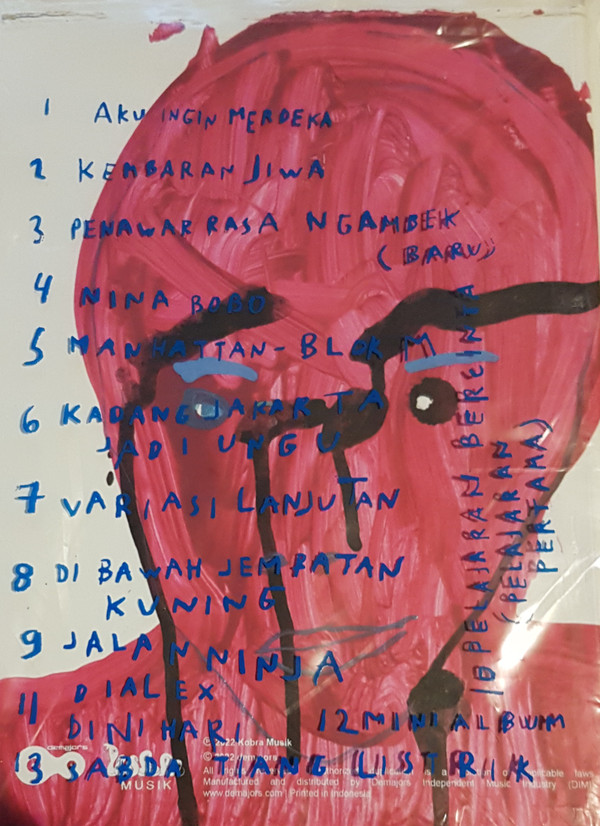 1 AKU INGIN MERDEKA
2 KEMBARAN JIWA
3 PENAWAR RASA NGAMBEK
(BARU)
4 NINA BOBO
5 MANHATTAN-BLOK M
6 KADANG JAKARTA
JADI UNGU
7 VARIASI LANJUTAN
8 DI BAWAH JEMBATAN
KUNING
9 JALAN NINJA
10 PELAJARAN BERCINTA
(PELAJARAN
PERTAMA)
11 DIALEX
DINI HARI
12 MINI ALBUM
13 SABDA TIANG LISTRIK
demajors
MUSIK
℗ 2022 Kobra Musik
© 2022 demajors
All rig
is a
of
licable laws
Manufactured and distributed by Demajors Independent Music Industry (DIM)
www.demajors.com | Printed in Indonesia